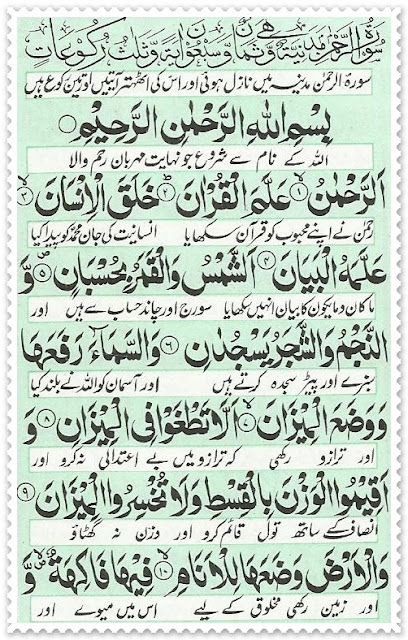 سُوْرَةُ الرَّحْمٰنِ مَدَنِيَّةٌ وَّهِيَ ثَمَانٌ وَّسَبْعُوْنَ اٰيَةً وَّثَلٰثُ رُكُوْعَاتٍ
سورۃ الرحمٰن مدینہ میں نازل ہوئی اور اس کی اٹھتر آیتیں اور تین رکوع ہیں
بِسْمِ اللّٰهِ الرَّحْمٰنِ الرَّحِيْمِ
اللہ کے نام سے شروع جو نہایت مہربان رحم والا
اَلرَّحْمٰنُ ۙ﴿۱﴾ عَلَّمَ الْقُرْاٰنَ ؕ﴿۲﴾ خَلَقَ الْاِنْسَانَ ۙ﴿۳﴾
رحمٰن نے اپنے محبوب کو قرآن سکھایا انسانیت کی جان محمد کو پیدا کیا
عَلَّمَهُ الْبَيَانَ ﴿۴﴾ اَلشَّمْسُ وَالْقَمَرُ بِحُسْبَانٍ ﴿۵﴾ وَّ
ماکان ومایکون کا بیان انہیں سکھایا سورج اور چاند حساب سے ہیں اور
النَّجْمُ وَالشَّجَرُ يَسْجُدٰنِ ﴿۶﴾ وَالسَّمَآءَ رَفَعَهَا
سبزے اور پیڑ سجدہ کرتے ہیں اور آسمان کو اللہ نے بلند کیا
وَوَضَعَ الْمِيْزَانَ ۙ﴿۷﴾ اَلَّا تَطْغَوْا فِى الْمِيْزَانِ ﴿۸﴾ وَ
اور ترازو رکھی کہ ترازو میں بے اعتدالی نہ کرو اور
اَقِيْمُوا الْوَزْنَ بِالْقِسْطِ وَلَا تُخْسِرُوا الْمِيْزَانَ ﴿۹﴾
انصاف کے ساتھ تول قائم کرو اور وزن نہ گھٹاؤ
وَالْاَرْضَ وَضَعَهَا لِلْاَنَامِ ۙ﴿۱۰﴾ فِيْهَا فَاكِهَةٌ وَّ
اور زمین رکھی مخلوق کے لیے اس میں میوے اور